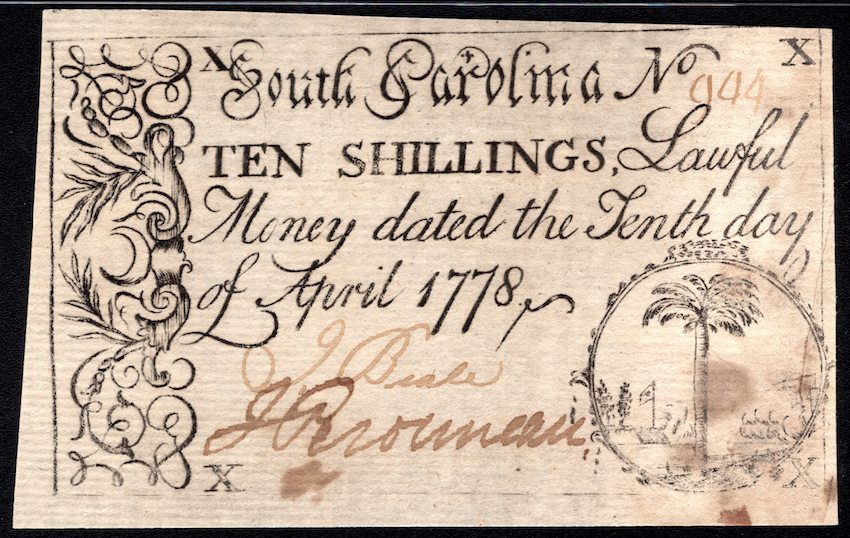 X South Carolina No 944 X
TEN SHILLINGS, Lawful
Money dated the Tenth day
of April 1778,
J. Beale
X X